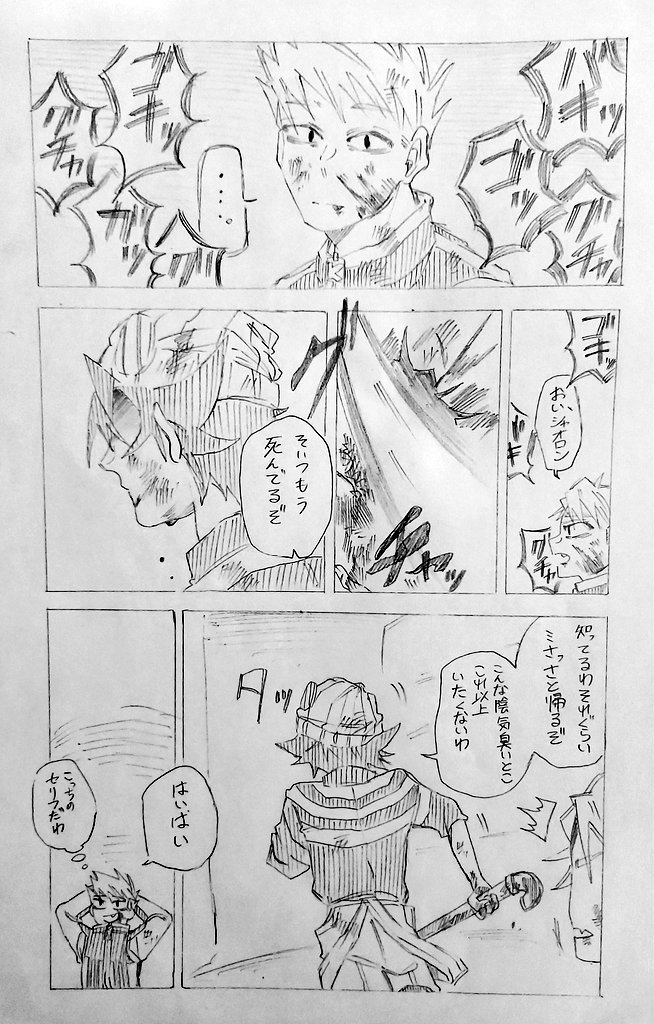 バキッ
グチャ
ゴキッ
グチャ
‥‥‥
ゴキッ
おい、シャオロン
グチャ
グチャッ
そいつもう
死んでるぞ
知ってるわそれぐらい
ミさっさと帰るぞ
こんな陰気臭いとこ
これ以上
いたくないわ
タッ
はいはい
こっちの
セリフだわ